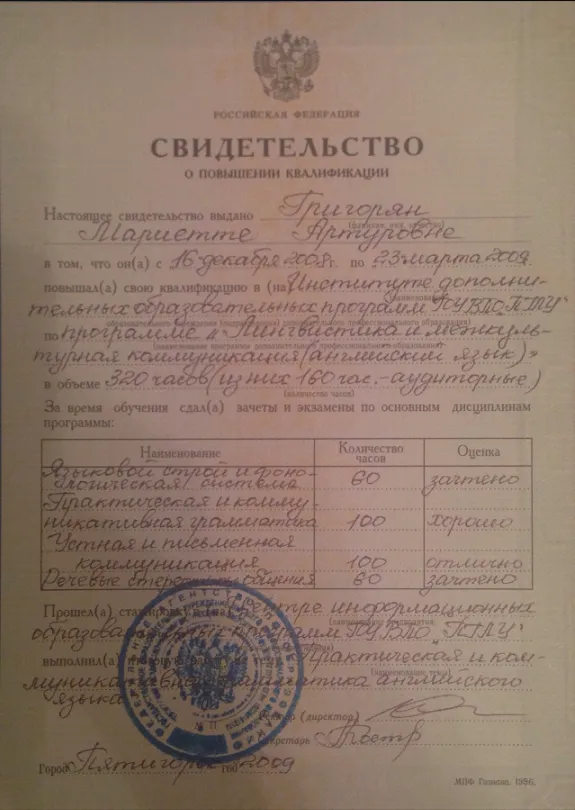 РОССИЙСКАЯ ФЕДЕРАЦИЯ
СВИДЕТЕЛЬСТВО
О ПОВЫШЕНИИ КВАЛИФИКАЦИИ
Настоящее свидетельство выдано Григорян
(фамилия, имя, отчество)
Мариетте Артуровне
в том, что он(а) с 16 декабря 2008г. по 23 марта 2009.
повышал(а) свою квалификацию в (на) Институте дополни-
(наименование)
тельных образовательных программ ГОУ ВПО ПГЛУ
образовательного учреждения дополнительного профессионального образования)
по программе „Лингвистика и межкуль-
(наименование программы дополнительного профессионального образования)
турная коммуникация (английский язык)»
в объеме 320 часов (из них 160 час.-аудиторные)
(количество часов)
За время обучения сдал(а) зачеты и экзамены по основным дисциплинам
программы:
Наименование Количество часов Оценка
Языковой строй и фоно-
логическая система 60 зачтено
Практическая и комму-
никативная грамматика 100 хорошо
Устная и письменная
коммуникация 100 отлично
Речевые стереотипы общения 60 зачтено
Прошел(а) стажировку в (на) Центре информационных
образовательных программ ГОУ ВПО „ПГЛУ"
выполнил(а) Практическая и ком-
муникативная грамматика английского
языка
Ректор (директор)
Секретарь
Город Пятигорск год 2009
МПФ Гознака. 1996.